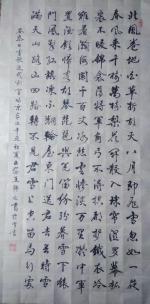 北風卷地白草折胡天八月即飛雪忽如一夜
春風來千樹萬樹梨花開散入珠簾濕羅幕狐
裘不暖錦衾薄將軍角弓不得控都護鐵衣冷
難著瀚海闌干百丈冰愁雲慘淡萬里凝中軍
置酒飲歸客胡琴琵琶與羌笛紛紛暮雪下轅
門風掣紅旗凍不翻輪臺東門送君去去時雪
滿天山路山迴路轉不見君雪上空留馬行處
岑參白雪歌送武判官歸京